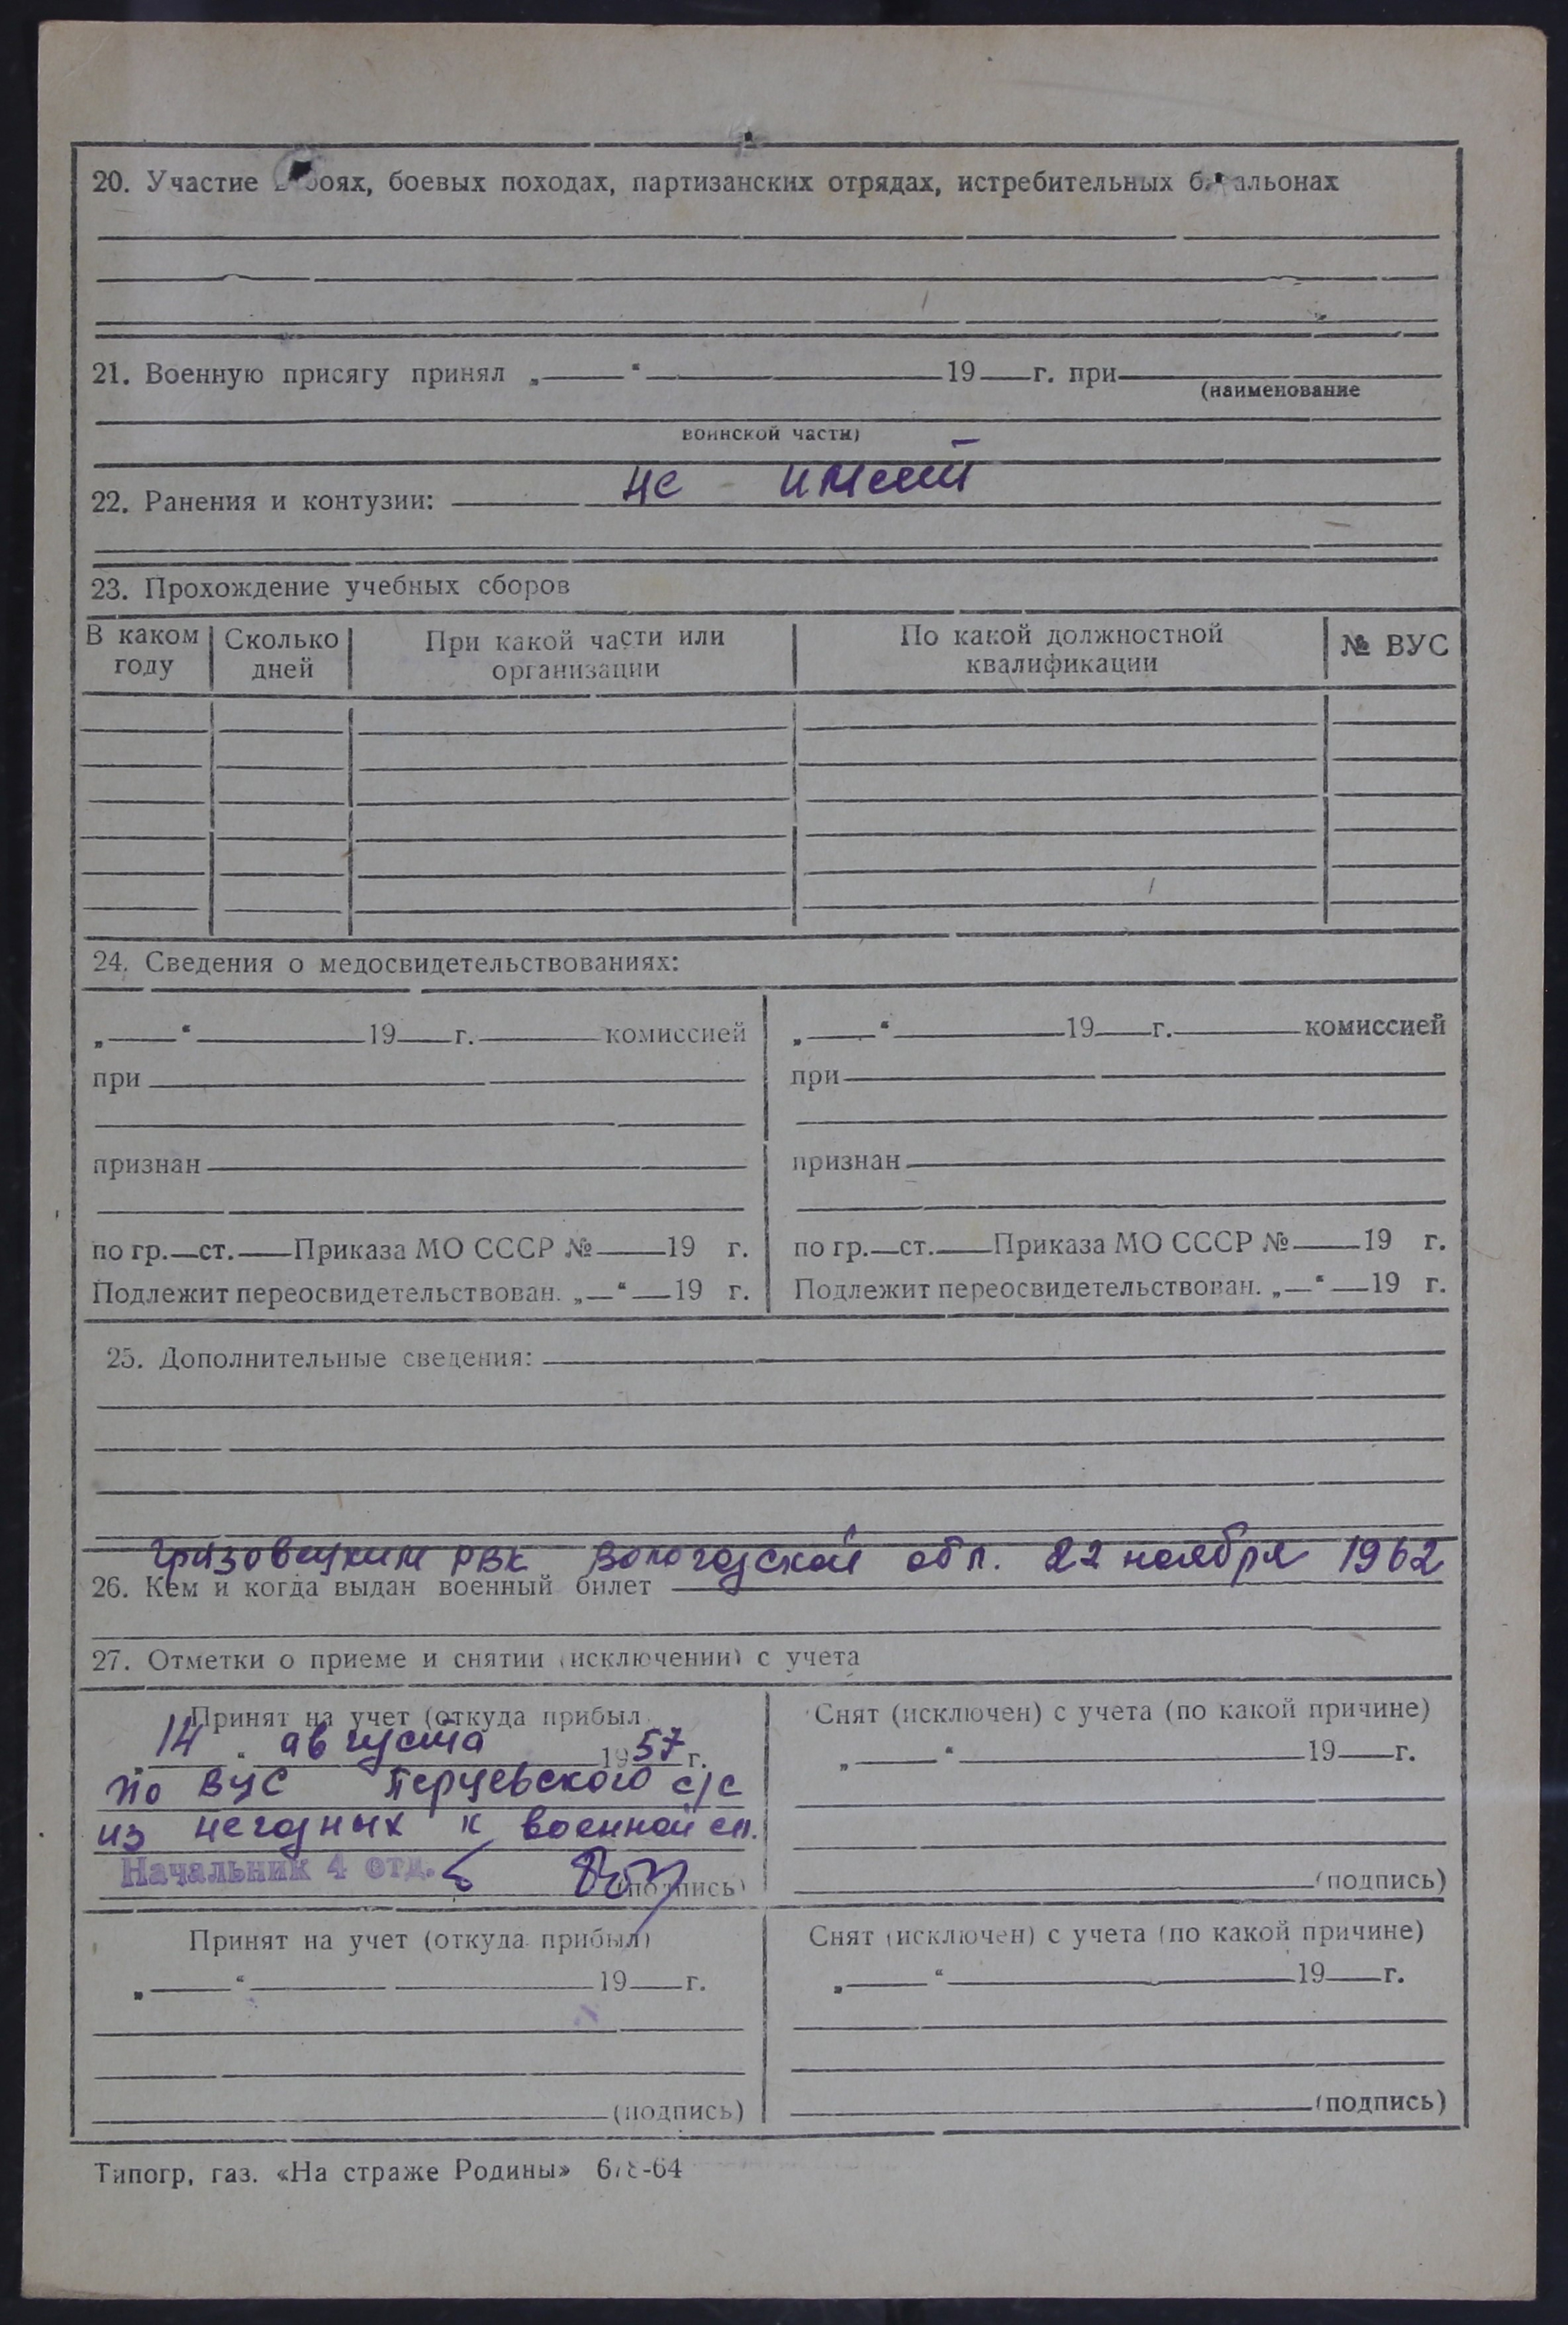 20. Участие в боях, боевых походах, партизанских отрядах, истребительных батальонах
21. Военную присягу принял „ “ 19 г. при
(наименование
воинской части)
22. Ранения и контузии: не имеет
23. Прохождение учебных сборов
В каком году Сколько дней При какой части или организации По какой должностной квалификации № ВУС
24. Сведения о медосвидетельствованиях:
„ “ 19 г. комиссией
при
признан
по гр. ст. Приказа МО СССР № 19 г.
Подлежит переосвидетельствован. „ “ 19 г.
„ “ 19 г. комиссией
при
признан
по гр. ст. Приказа МО СССР № 19 г.
Подлежит переосвидетельствован. „ “ 19 г.
25. Дополнительные сведения:
Грязовецким РВК Вологодской обл. 22 ноября 1962
26. Кем и когда выдан военный билет
27. Отметки о приеме и снятии (исключении) с учета
Принят на учет (откуда прибыл
„14“ августа 1957 г.
по ВУС Перцевского с/с
из негодных к военной сл.
Начальник 4 отд.
(подпись)
Снят (исключен) с учета (по какой причине)
„ “ 19 г.
(подпись)
Принят на учет (откуда прибыл)
„ “ 19 г.
(подпись)
Снят (исключен) с учета (по какой причине)
„ “ 19 г.
(подпись)
Типогр, газ. «На страже Родины»